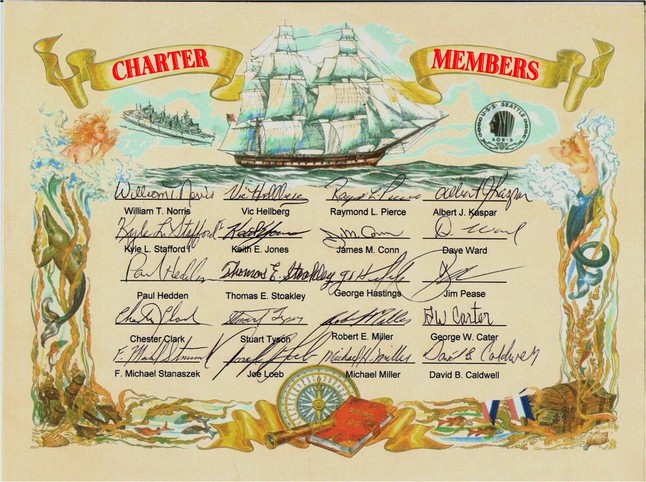 CHARTER MEMBERS
U.S.S. SEATTLE
AOE-3
William T. Norris Vic Hellberg Raymond L. Pierce Albert J Kaspar
William T. Norris Vic Hellberg Raymond L. Pierce Albert J. Kaspar
Kyle L. Stafford Keith E Jones J M Conn D. Ward
Kyle L. Stafford Keith E. Jones James M. Conn Dave Ward
Paul Hedden Thomas E. Stoakley
Paul Hedden Thomas E. Stoakley George Hastings Jim Pease
Chester Clark Stuart Tyson Robert E Miller GW Carter
Chester Clark Stuart Tyson Robert E. Miller George W. Cater
F. Joseph Loeb Michael Miller David B Caldwell
F. Michael Stanaszek Joe Loeb Michael Miller David B. Caldwell